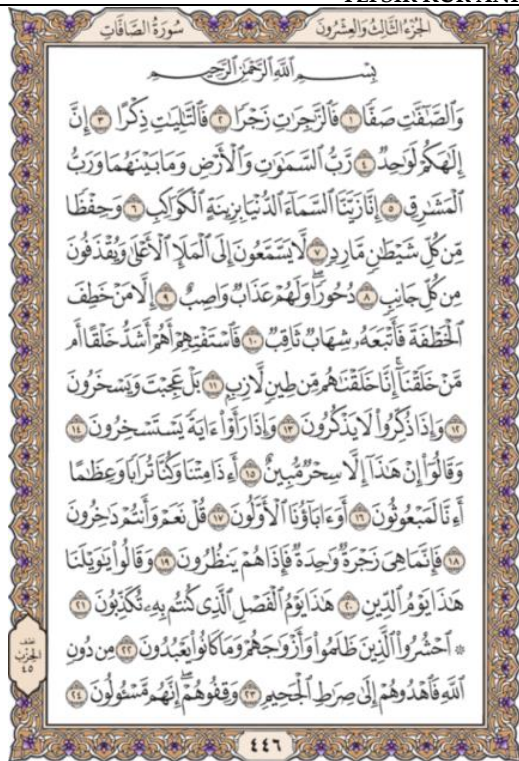 الجُزْءُ الثَّالِثُ وَالعِشْرُونَ سُورَةُ الصَّافَّاتِ
بِسْمِ ٱللَّهِ ٱلرَّحْمَٰنِ ٱلرَّحِيمِ
وَٱلصَّٰٓفَّٰتِ صَفّٗا ١ فَٱلزَّٰجِرَٰتِ زَجۡرٗا ٢ فَٱلتَّٰلِيَٰتِ ذِكۡرًا ٣ إِنَّ
إِلَٰهَكُمۡ لَوَٰحِدٞ ٤ رَّبُّ ٱلسَّمَٰوَٰتِ وَٱلۡأَرۡضِ وَمَا بَيۡنَهُمَا وَرَبُّ
ٱلۡمَشَٰرِقِ ٥ إِنَّا زَيَّنَّا ٱلسَّمَآءَ ٱلدُّنۡيَا بِزِينَةٍ ٱلۡكَوَاكِبِ ٦ وَحِفۡظٗا
مِّن كُلِّ شَيۡطَٰنٖ مَّارِدٖ ٧ لَّا يَسَّمَّعُونَ إِلَى ٱلۡمَلَإِ ٱلۡأَعۡلَىٰ وَيُقۡذَفُونَ
مِن كُلِّ جَانِبٖ ٨ دُحُورٗاۖ وَلَهُمۡ عَذَابٞ وَاصِبٌ ٩ إِلَّا مَنۡ خَطِفَ
ٱلۡخَطۡفَةَ فَأَتۡبَعَهُۥ شِهَابٞ ثَاقِبٞ ١٠ فَٱسۡتَفۡتِهِمۡ أَهُمۡ أَشَدُّ خَلۡقًا أَم
مَّنۡ خَلَقۡنَآۚ إِنَّا خَلَقۡنَٰهُم مِّن طِينٖ لَّازِبِۭ ١١ بَلۡ عَجِبۡتَ وَيَسۡخَرُونَ
١٢ وَإِذَا ذُكِّرُواْ لَا يَذۡكُرُونَ ١٣ وَإِذَا رَأَوۡاْ ءَايَةٗ يَسۡتَسۡخِرُونَ ١٤
وَقَالُوٓاْ إِنۡ هَٰذَآ إِلَّا سِحۡرٞ مُّبِينٌ ١٥ أَءِذَا مِتۡنَا وَكُنَّا تُرَابٗا وَعِظَٰمًا
أَءِنَّا لَمَبۡعُوثُونَ ١٦ أَوَءَابَآؤُنَا ٱلۡأَوَّلُونَ ١٧ قُلۡ نَعَمۡ وَأَنتُمۡ دَٰخِرُونَ
١٨ فَإِنَّمَا هِيَ زَجۡرَةٞ وَٰحِدَةٞ فَإِذَا هُمۡ يَنظُرُونَ ١٩ وَقَالُواْ يَٰوَيۡلَنَا
هَٰذَا يَوۡمُ ٱلدِّينِ ٢٠ هَٰذَا يَوۡمُ ٱلۡفَصۡلِ ٱلَّذِي كُنتُم بِهِۦ تُكَذِّبُونَ ٢١
۞ ٱحۡشُرُواْ ٱلَّذِينَ ظَلَمُواْ وَأَزۡوَٰجَهُمۡ وَمَا كَانُواْ يَعۡبُدُونَ ٢٢ مِن دُونِ
ٱللَّهِ فَٱهۡدُوهُمۡ إِلَىٰ صِرَٰطِ ٱلۡجَحِيمِ ٢٣ وَقِفُوهُمۡۖ إِنَّهُم مَّسۡـُٔولُونَ ٢٤
نصف
الحزب
٤٥
٤٤٦